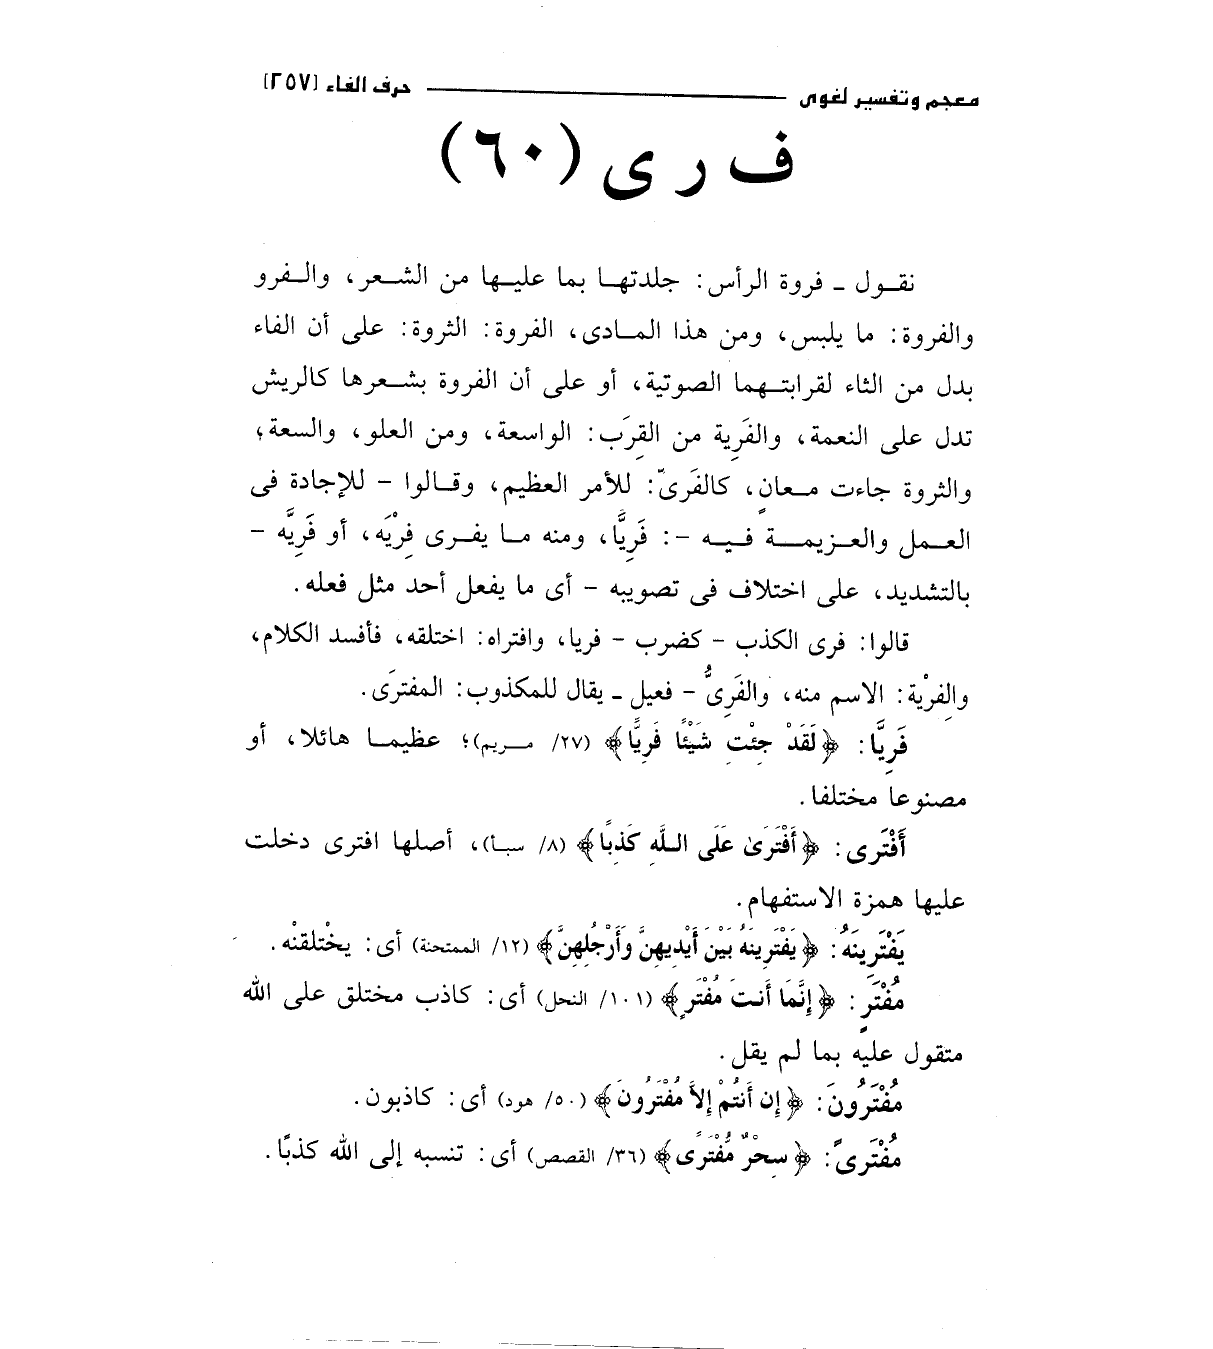 معجم وتفسير لغوى حرف الفاء [٢٥٧]
ف ر ى (٦٠)
نقـول ـ فروة الرأس: جلدتهـا بما عليـها من الشـعر، والـفرو
والفروة: ما يلبس، ومن هذا المـادى، الفروة: الثروة: على أن الفاء
بدل من الثاء لقرابتـهما الصوتية، أو على أن الفروة بشـعرها كالريش
تدل على النعمة، والفَرِية من القِرَب: الواسعة، ومن العلو، والسعة؛
والثروة جاءت مـعانٍ، كالفَرىّ: للأمر العظيم، وقـالوا - للإجادة فى
العـمل والعـزيمـة فـيـه -: فَرِيًّا، ومنه مـا يفـرى فِرْيَه، أو فَرِيَّه -
بالتشديد، على اختلاف فى تصويبه - أى ما يفعل أحد مثل فعله.
قالوا: فرى الكذب - كضرب - فريا، وافتراه: اختلقه، فأفسد الكلام،
والفِرْية: الاسم منه، والفَرِىُّ - فعيل ـ يقال للمكذوب: المفترَى.
فَرِيًّا: ﴿لَقَدْ جِئْتِ شَيْئًا فَرِيًّا﴾ (٢٧/ مـريم)؛ عظيمـا هائلا، أو
مصنوعا مختلفا.
أَفْتَرى: ﴿أَفْتَرَىٰ عَلَى اللَّهِ كَذِبًا﴾ (٨/ سبـأ)، أصلها افترى دخلت
عليها همزة الاستفهام.
يَفْتَرِينَهُ: ﴿يَفْتَرِينَهُ بَيْنَ أَيْدِيهِنَّ وَأَرْجُلِهِنَّ﴾ (١٢/ الممتحنة) أى: يخْتلقنْه.
مُفْتَرٍ: ﴿إِنَّمَا أَنتَ مُفْتَرٍ﴾ (١٠١/ النحل) أى: كاذب مختلق على الله
متقول عليه بما لم يقل.
مُفْتَرُونَ: ﴿إِن أَنتُمْ إِلاَّ مُفْتَرُونَ﴾ (٥٠/ هود) أى: كاذبون.
مُفْتَرىً: ﴿سِحْرٌ مُّفْتَرًى﴾ (٣٦/ القصص) أى: تنسبه إلى الله كذبًا.